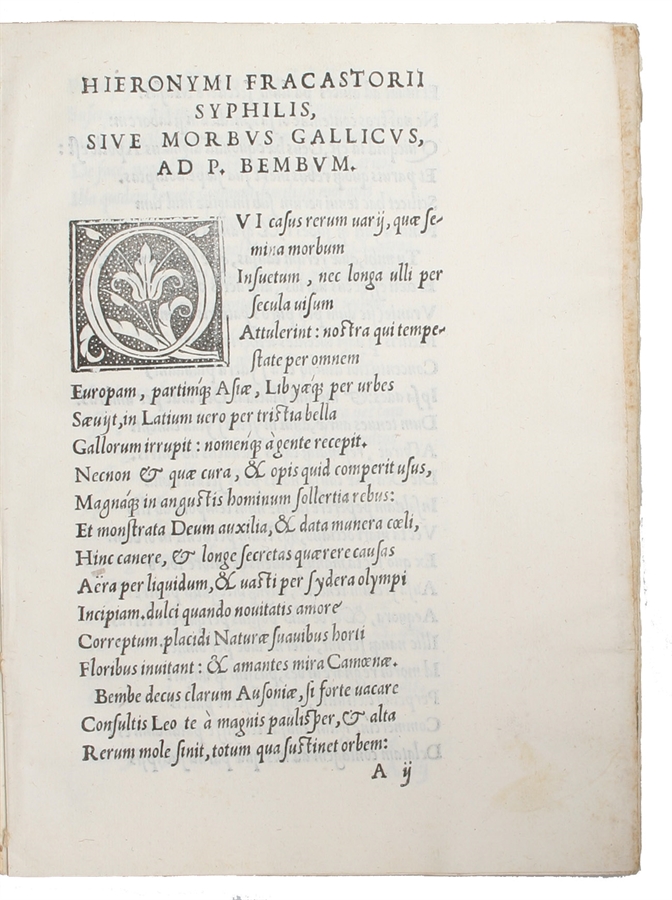 HIERONYMI FRACASTORII
SYPHILIS,
SIVE MORBVS GALLICVS,
AD P. BEMBVM.
QVI casus rerum uarij, quæ se-
mina morbum
Insuetum, nec longa ulli per
secula uisum
Attulerint: nostra qui tempe-
state per omnem
Europam, partimq́; Asiæ, Libyæq́; per urbes
Sæuijt, in Latium uero per tristia bella
Gallorum irrupit: nomenq́; à gente recepit.
Necnon & quæ cura, & opis quid comperit usus,
Magnaq́; in angustis hominum sollertia rebus:
Et monstrata Deum auxilia, & data munera cœli,
Hinc canere, & longe secretas quærere causas
Aëra per liquidum, & uasti per sydera olympi
Incipiam. dulci quando nouitatis amore
Correptum, placidi Naturæ suauibus horti
Floribus inuitant: & amantes mira Camœnæ.
Bembe decus clarum Ausoniæ, si forte uacare
Consultis Leo te à magnis paulisper, & alta
Rerum mole sinit, totum qua sustinet orbem:
A ij